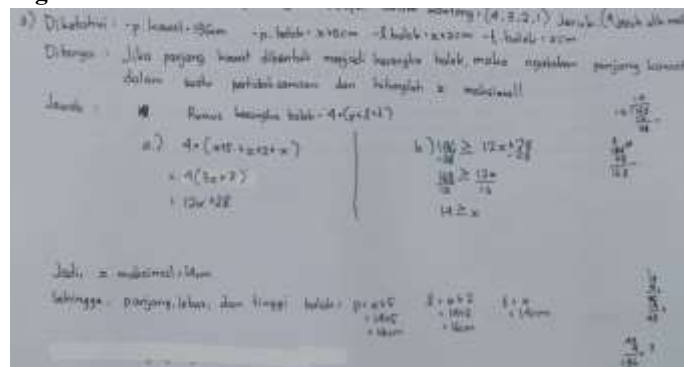 (4,3,2,1)
3) Diketahui : -p. kawat = 196cm -p. balok = x+5cm -l. balok = x+2cm -t. balok = x cm
Ditanya : Jika panjang kawat dibentuk menjadi kerangka balok, maka nyatakan panjang kawat
dalam suatu dan hitunglah x maksimal!
Jawab : Rumus kerangka balok = 4×(p+l+t)
a.) 4×(x+5+x+2+x)
= 4(3x+7)
= 12x+28
b.) 196 ≥ 12x+28
-28 -28
168/12 ≥ 12x/12
14 ≥ x
Jadi, x maksimal = 14cm
Sehingga, panjang, lebar, dan tinggi balok: p = x+5 l = x+2 t = x
= 14+5 = 14+2 = 14cm
= 19cm = 16cm